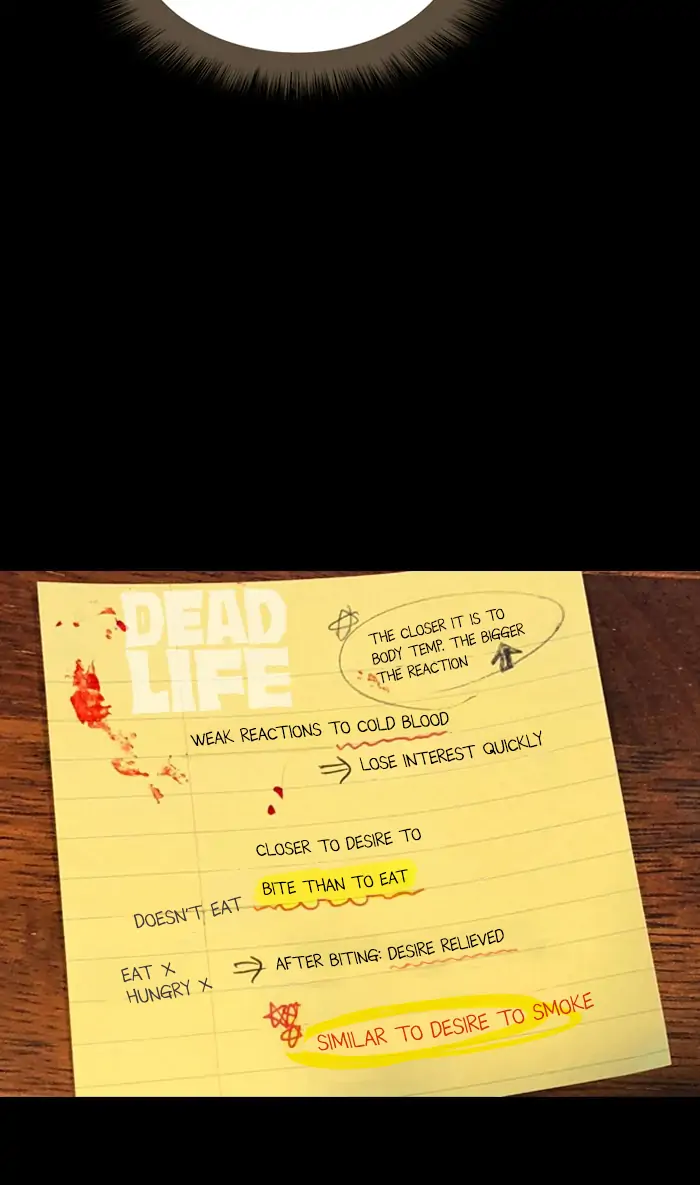 DEAD
LIFE
THE CLOSER IT IS TO
BODY TEMP. THE BIGGER
THE REACTION
WEAK REACTIONS TO COLD BLOOD
⇒ LOSE INTEREST QUICKLY
CLOSER TO DESIRE TO
BITE THAN TO EAT
DOESN'T EAT
EAT X
HUNGRY X
⇒ AFTER BITING: DESIRE RELIEVED
SIMILAR TO DESIRE TO SMOKE